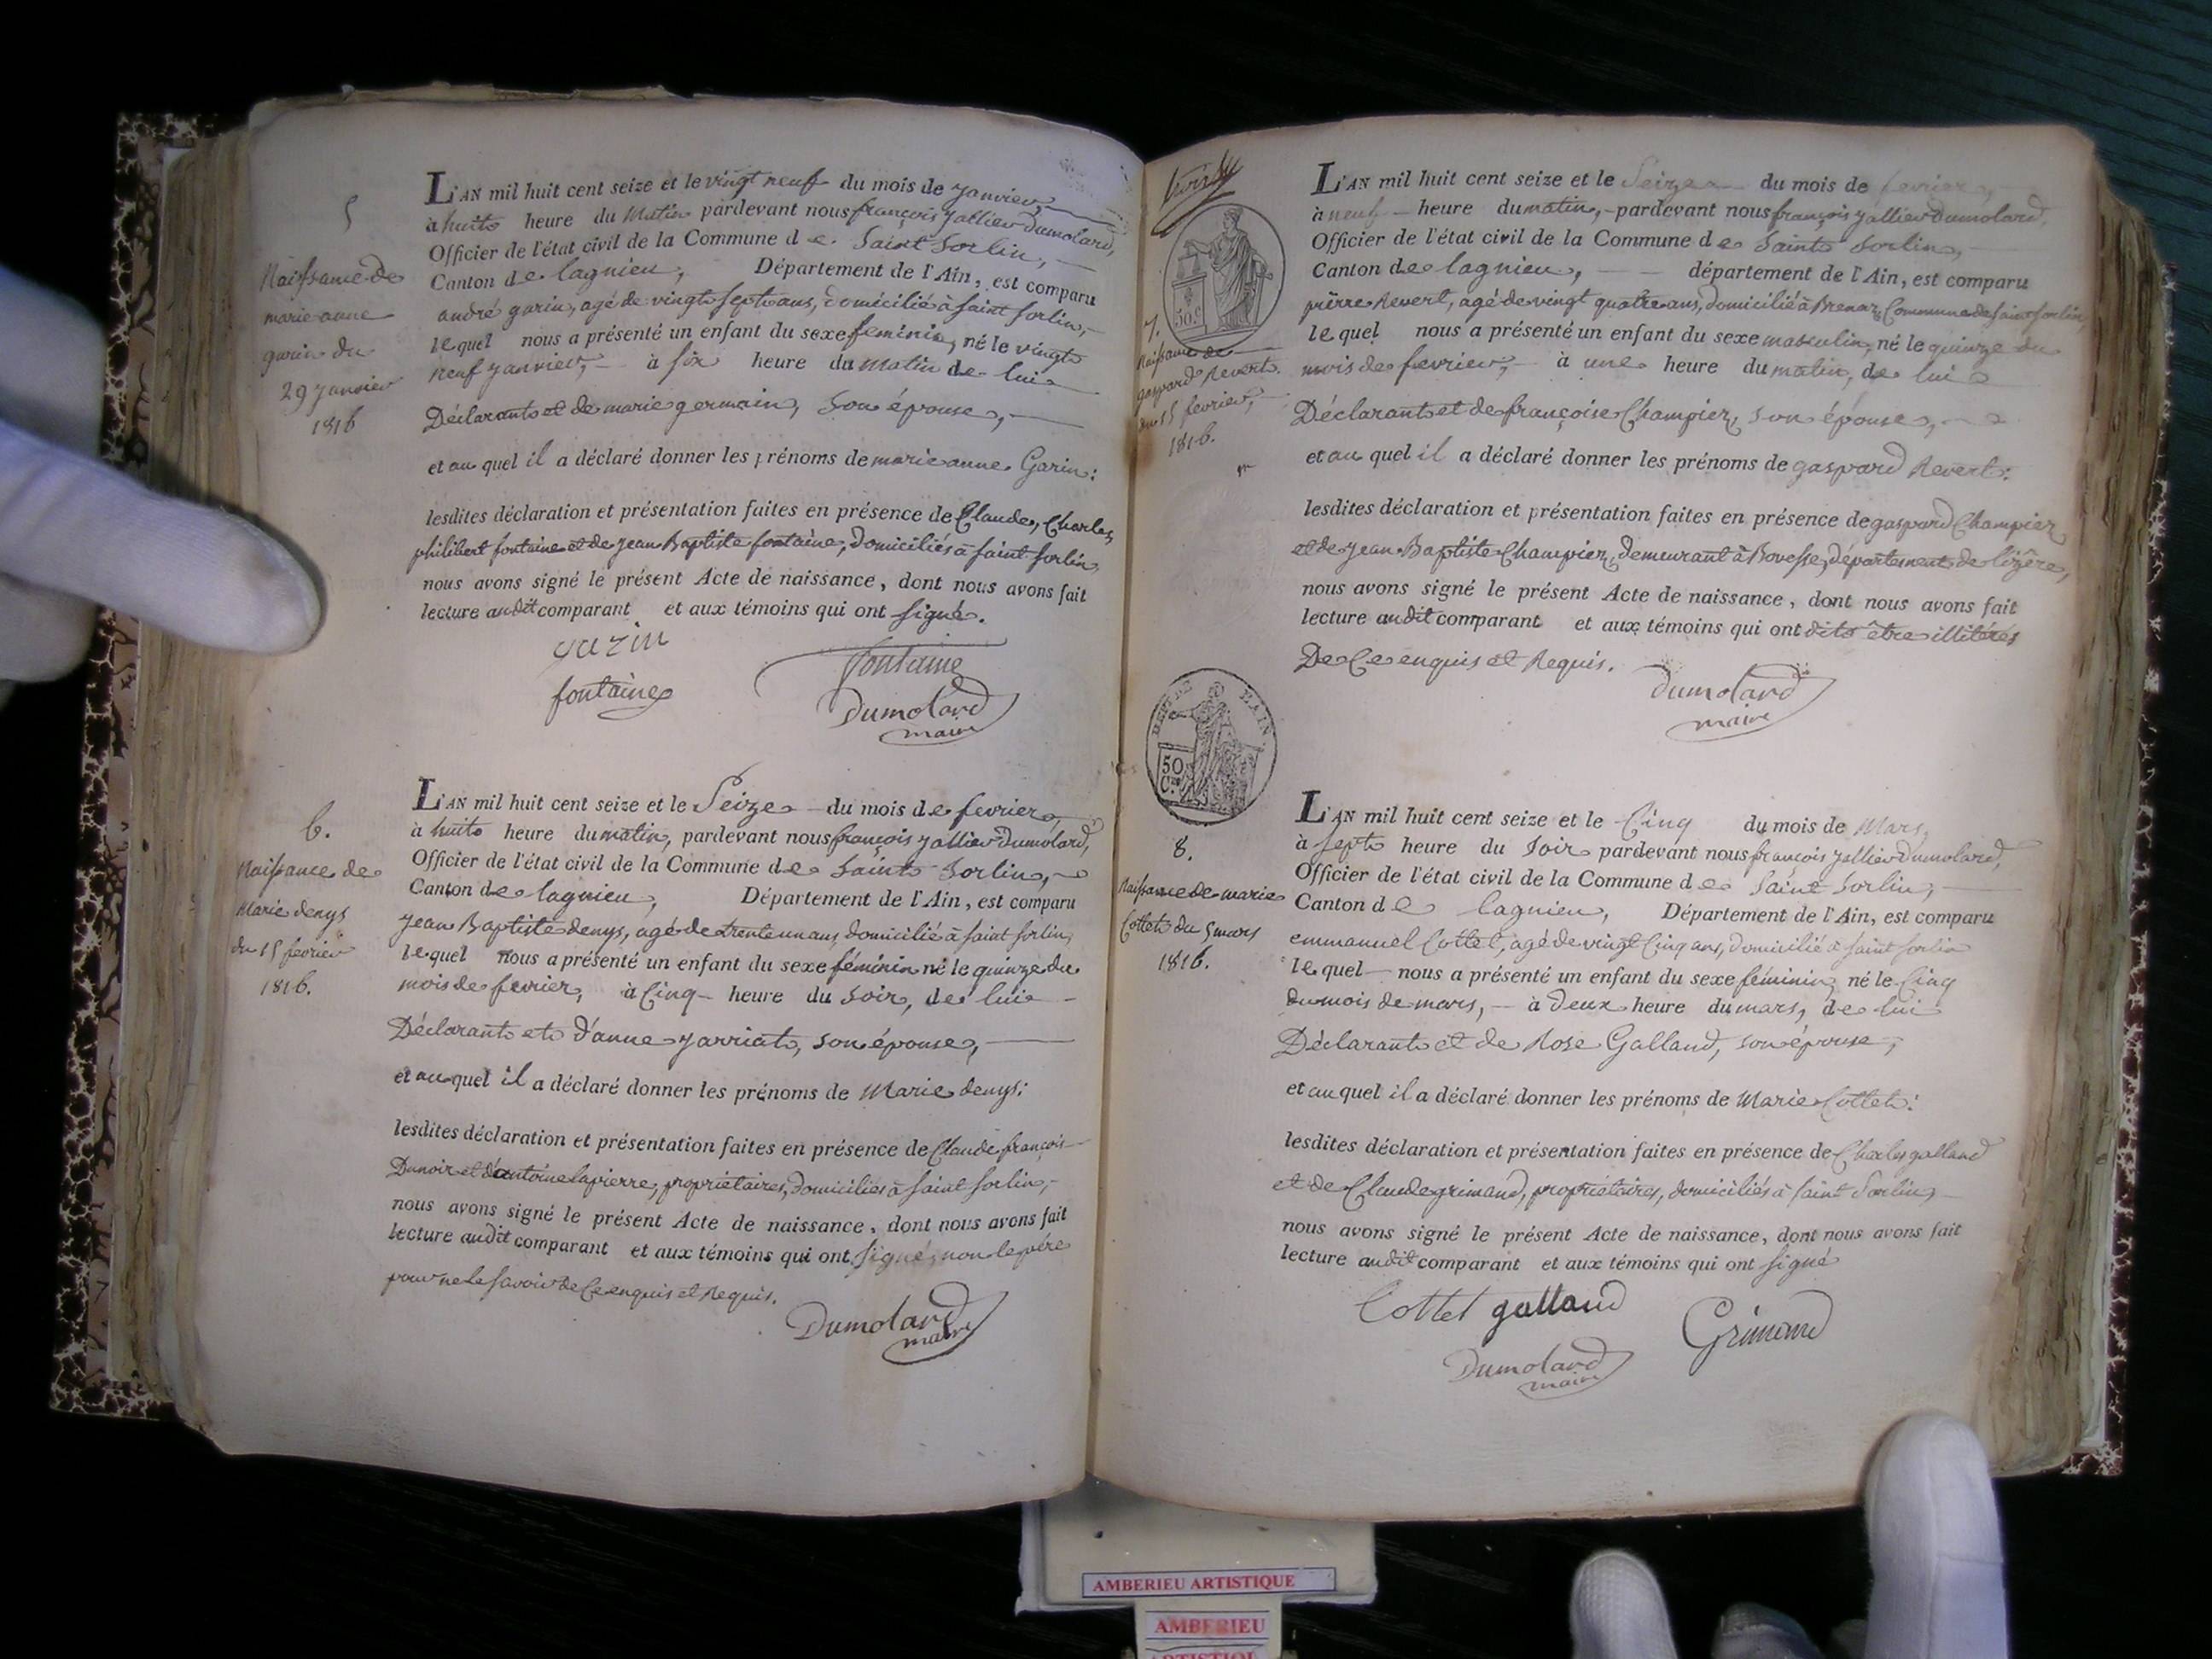 5
Naissance de
marie anne
garin du
29 janvier
1816
L'AN mil huit cent seize et le vingt neuf du mois de janvier,
à huit heure du matin pardevant nous françois jallier Dumolard,
Officier de l'état civil de la Commune de Saint Sorlin,
Canton de lagnieu, Département de l'Ain, est comparu
andré garin, agé de vingt sept ans, domicilié à saint sorlin,
lequel nous a présenté un enfant du sexe feminin, né le vingt
neuf janvier, à six heure du matin de lui
Déclarant et de marie germain, son épouse,
et au quel il a déclaré donner les prénoms de marie anne Garin:
lesdites déclaration et présentation faites en présence de Claude, Charles,
philibert fontaine et de jean Baptiste fontaine, domiciliés à saint sorlin,
nous avons signé le présent Acte de naissance, dont nous avons fait
lecture audit comparant et aux témoins qui ont signé.
garin
fontaine
fontaine
Dumolard
maire
6.
Naissance de
Marie denys
du 15 fevrier
1816.
L'AN mil huit cent seize et le Seize du mois de fevrier,
à huit heure du matin, pardevant nous françois jallier Dumolard,
Officier de l'état civil de la Commune de Saint Sorlin,
Canton de lagnieu, Département de l'Ain, est comparu
jean Baptiste denys, agé de trente un ans, domicilié à saint sorlin,
lequel nous a présenté un enfant du sexe féminin né le quinze du
mois de fevrier, à Cinq heure du soir, de lui
Déclarant et d'anne jarriat, son épouse,
et au quel il a déclaré donner les prénoms de Marie denys:
lesdites déclaration et présentation faites en présence de Claude françois
Dunoir et d'antoine lapierre, propriétaires, domiciliés à saint sorlin,
nous avons signé le présent Acte de naissance, dont nous avons fait
lecture audit comparant et aux témoins qui ont signé, non le père
pour ne le savoir de Ce enquis et Requis.
Dumolard
maire
50 c
7.
Naissance de
gaspard Revert.
du 15 fevrier,
1816.
L'AN mil huit cent seize et le Seize du mois de fevrier,
à neuf heure du matin, pardevant nous françois jallier Dumolard,
Officier de l'état civil de la Commune de Saint Sorlin,
Canton de lagnieu, département de l'Ain, est comparu
pierre Revert, agé de vingt quatre ans, domicilié à Brenaz, Commune de saint sorlin,
lequel nous a présenté un enfant du sexe masculin, né le quinze du
mois de fevrier, à une heure du matin, de lui
Déclarant et de françoise Champier, son épouse,
et au quel il a déclaré donner les prénoms de gaspard Revert:
lesdites déclaration et présentation faites en présence de gaspard Champier
et de jean Baptiste Champier, demeurant à Bovesse, département de l'izère,
nous avons signé le présent Acte de naissance, dont nous avons fait
lecture audit comparant et aux témoins qui ont dit être illitérés
De Ce enquis et Requis.
Dumolard
maire
50
Ces
8.
Naissance de marie
Cottet du 5 mars
1816.
L'AN mil huit cent seize et le Cinq du mois de Mars,
à sept heure du Soir pardevant nous françois jallier Dumolard,
Officier de l'état civil de la Commune de Saint Sorlin,
Canton de lagnieu, Département de l'Ain, est comparu
emmanuel Cottet, agé de vingt Cinq ans, domicilié à saint sorlin
lequel nous a présenté un enfant du sexe féminin, né le Cinq
du mois de mars, à deux heure du mars, de lui
Déclarant et de Rose Galland, son épouse,
et au quel il a déclaré donner les prénoms de Marie Cottet:
lesdites déclaration et présentation faites en présence de Charles galland
et de Claude grimand, propriétaires, domiciliés à saint Sorlin,
nous avons signé le présent Acte de naissance, dont nous avons fait
lecture audit comparant et aux témoins qui ont signé
Cottet galland
Grimand
Dumolard
maire
AMBERIEU ARTISTIQUE
AMBERIEU
ARTISTIQUE